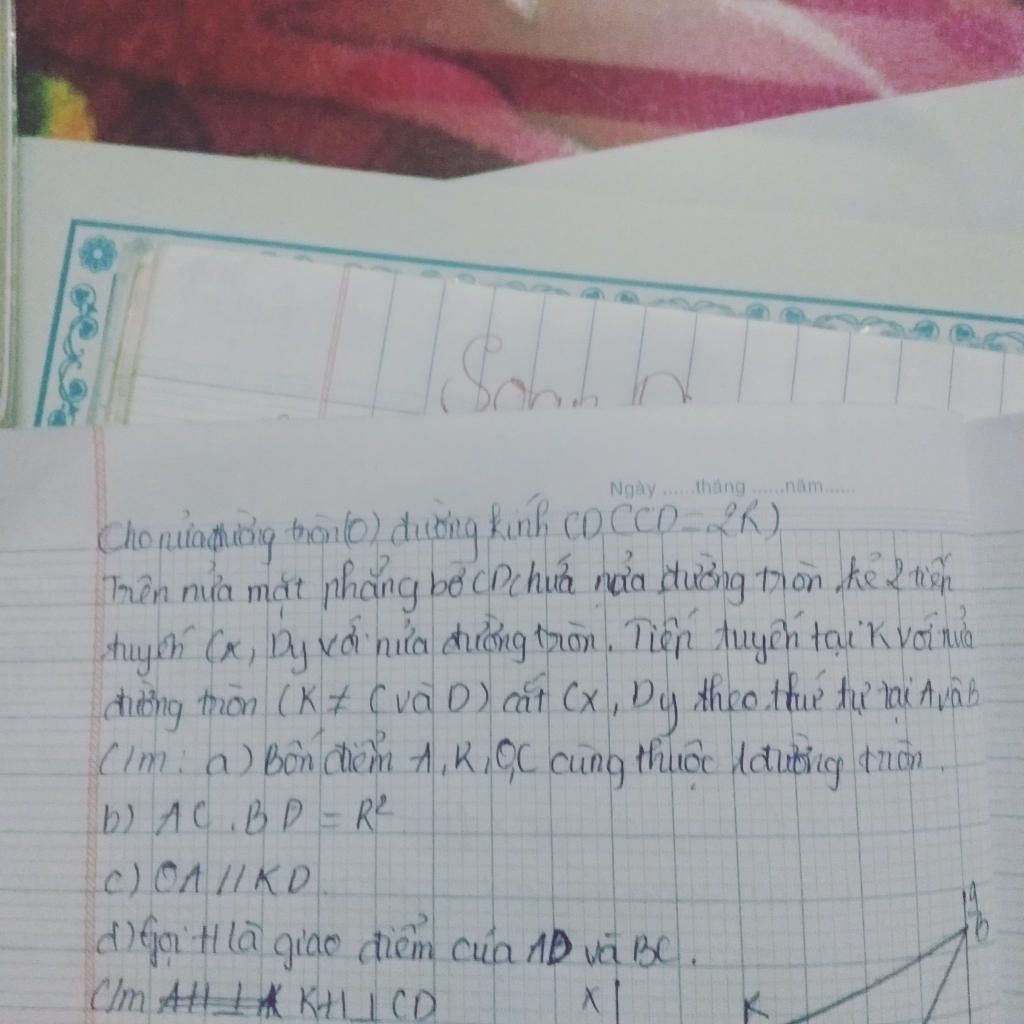 Ngày ......tháng ......năm......
Cho nửa đường tròn (O) đường kính CD (CD = 2R)
Trên nửa mặt phẳng bờ CD chứa nửa đường tròn kẻ 2 tiếp
tuyến Cx, Dy với nửa đường tròn. Tiếp tuyến tại K với nửa
đường tròn (K ≠ C và D) cắt Cx, Dy theo thứ tự tại A và B
C/m: a) Bốn điểm A, K, O, C cùng thuộc 1 đường tròn.
b) AC . BD = R²
c) OA // KD
d) Gọi H là giao điểm của AD và BC.
C/m KH ⊥ CD
x
K
y
B